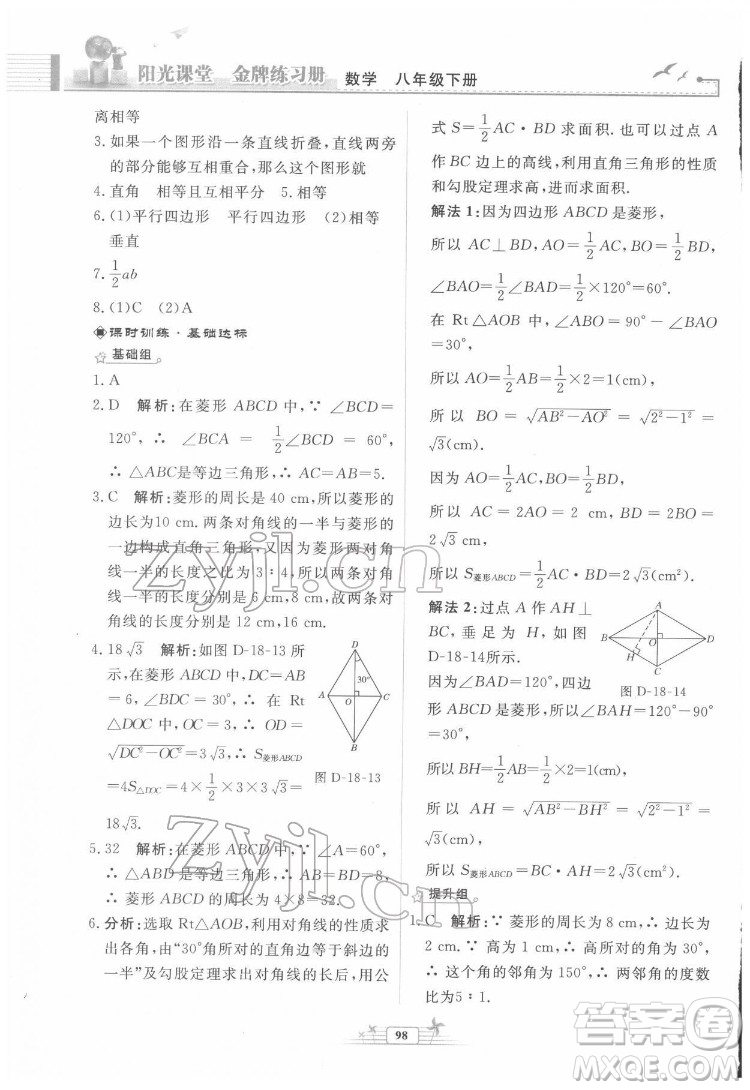 阳光课堂 金牌练习册 数学 八年级下册
离相等
3. 如果一个图形沿一条直线折叠,直线两旁
的部分能够互相重合,那么这个图形就
4. 直角 相等且互相平分 5. 相等
6. (1)平行四边形 平行四边形 (2)相等
垂直
7. \frac{1}{2}ab
8. (1)C (2)A
课时训练·基础达标
基础组
1. A
2. D 解析:在菱形 ABCD 中,∵ ∠BCD=
120°,∴ ∠BCA = \frac{1}{2}∠BCD = 60°,
∴ △ABC是等边三角形,∴ AC=AB=5.
3. C 解析:菱形的周长是 40 cm,所以菱形的
边长为10 cm. 两条对角线的一半与菱形的
一边构成直角三角形,又因为菱形两对角
线一半的长度之比为 3∶4,所以菱形对角
线一半的长度分别是 6 cm,8 cm,所以对角
线的长度分别是 12 cm,16 cm.
4. 18√3 解析:如图 D-18-13 所
示,在菱形 ABCD 中,∵ DC
=6,∠BDC=30°,∴ 在 Rt
△DOC 中,OC=3,∴ OD=
√(DC²-OC²)=3√3,∴ S菱形ABCD
=4S△DOC=4×\frac{1}{2}×3×3√3=
18√3.
D
30°
A
O
C
B
图 D-18-13
5. 32 解析:在菱形 ABCD 中,∵ ∠A=60°,
∴ △ABD 是等边三角形,∴ AB=BD=8,
∴ 菱形 ABCD 的周长为 4×8=32.
6. 分析:选取 Rt△AOB,利用对角线的性质求
出各角,由“30°角所对的直角边等于斜边的
一半”及勾股定理求出对角线的长后,用公
式 S=\frac{1}{2}AC·BD 求面积. 也可以过点 A
作 BC 边上的高线,利用直角三角形的性质
和勾股定理求高,进而求面积.
解法 1:因为四边形 ABCD 是菱形,
所以 AC⊥BD,AO=\frac{1}{2}AC,BO=\frac{1}{2}BD,
∠BAO=\frac{1}{2}∠BAD=\frac{1}{2}×120°=60°.
在 Rt △AOB 中,∠ABO=90°-∠BAO
=30°,
所以 AO=\frac{1}{2}AB=\frac{1}{2}×2=1(cm),
所以 BO = √(AB²-AO²) = √(2²-1²) =
√3(cm).
因为 AO=\frac{1}{2}AC,BO=\frac{1}{2}BD,
所以 AC = 2AO = 2(cm),BD = 2BO =
2√3(cm),
所以 S菱形ABCD=\frac{1}{2}AC·BD=2√3(cm²).
解法 2:过点 A 作 AH⊥
BC,垂足为 H,如图
D-18-14所示.
因为∠BAD=120°,四边
形 ABCD 是菱形,所以∠BAH=120°-90°
=30°,
A
B
O
D
H
C
图 D-18-14
所以 BH=\frac{1}{2}AB=\frac{1}{2}×2=1(cm),
所以 AH = √(AB²-BH²) = √(2²-1²) =
√3(cm),
所以 S菱形ABCD=BC·AH=2√3(cm²).
提升组
1. C 解析:菱形的周长为 8 cm,∴ 边长为
2 cm. ∴ 这个菱形的一个角为 30°,∴ 这
个角的邻角为 150°,∴ 两邻角的度数
比为5∶1.
98
zyjl.cn
zyjl.cn
答案圈
MXQE.COM